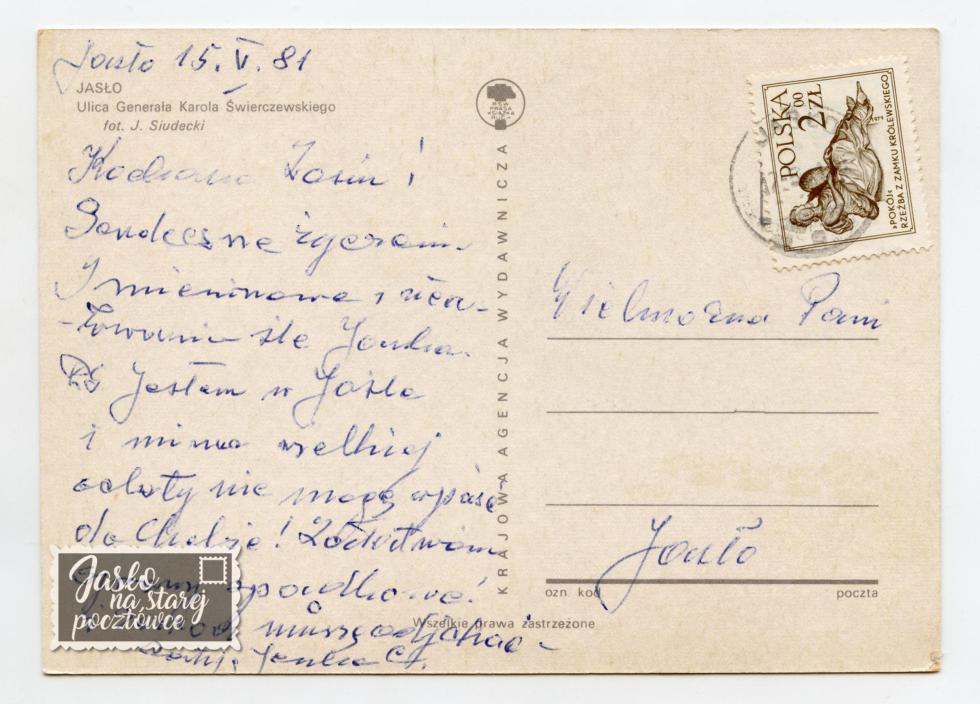 Jasło 15. V. 81
JASŁO
Ulica Generała Karola Świerczewskiego
fot. J. Siudecki
Kochana Zosiu!
Serdeczne życzenia
Imieninowe i uca-
-łowania śle Janka.
PS Jestem w Jaśle
i mimo wielkiej
ochoty nie mogę wpaść
do Ciebie!
muszę odjechać
Janka
KRAJOWA AGENCJA WYDAWNICZA
RSW
PRASA
KSIĄŻKA
RUCH
POLSKA
2 00 ZŁ
1979
»POKÓJ«
RZEŹBA Z ZAMKU KRÓLEWSKIEGO
Wielmożna Pani
Jasło
ozn. kod
poczta
Wszelkie prawa zastrzeżone
Jasło
na starej
pocztówce